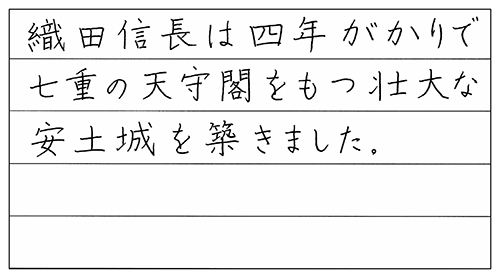 織田信長は四年がかりで
七重の天守閣をもつ壮大な
安土城を築きました。